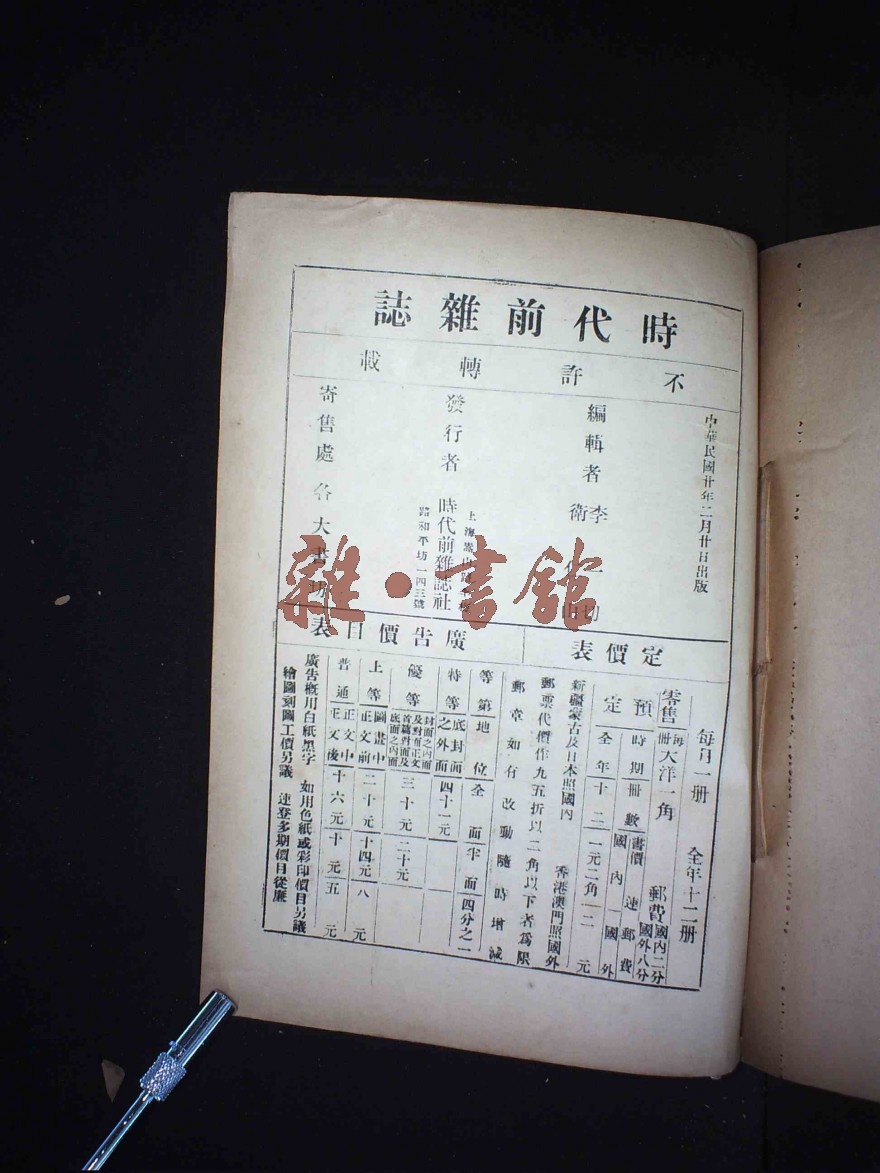 時代前雜誌
不許轉載
中華民國廿年二月廿日出版
編輯者 李一切
衛
發行者 時代前雜誌社
上海
路和平坊一四三號
寄售處 各大書坊
雜·書館
定價表
每月一册 全年十二册
零售 每册大洋一角 郵費 國內二分 國外八分
預定
時期 册數 書價連郵費
國內 國外
全年 十二 一元二角 二元
新疆蒙古及日本照國內 香港澳門照國外
郵票代價作九五折以二角以下者爲限
郵章如有改動隨時增減
廣告價目表
等第 地位 全面 半面 四分之一
特等 底封面之外面 四十一元
優等 封面之內面及對面正文首篇對面及底面之內面 三十元 二十元
上等 圖畫中正文前 二十元 十四元 八元
普通 正文中正文後 十六元 十元 五元
廣告概用白紙黑字 如用色紙或彩印價目另議
繪圖刻圖工價另議 連登多期價目從廉